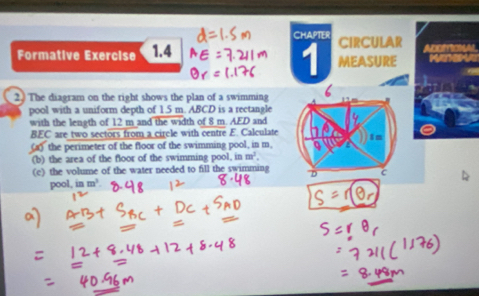 d = 1.5 m
Formative Exercise 1.4
AE = 7.211 m
θr = 1.176
CHAPTER
1
CIRCULAR
MEASURE
ADDITIONAL
2. The diagram on the right shows the plan of a swimming
pool with a uniform depth of 1.5 m. ABCD is a rectangle
with the length of 12 m and the width of 8 m. AED and
BEC are two sectors from a circle with centre E. Calculate
(a) the perimeter of the floor of the swimming pool, in m,
(b) the area of the floor of the swimming pool, in m².
(c) the volume of the water needed to fill the swimming
pool, in m³.
6
8 m
D
C
12 8.48 12 8.48
a) AB + SBC + DC + SAD
= 12 + 8.48 + 12 + 8.48
= 40.96 m
S = rθr
S = r θr
= 7.211 (1.176)
= 8.48m